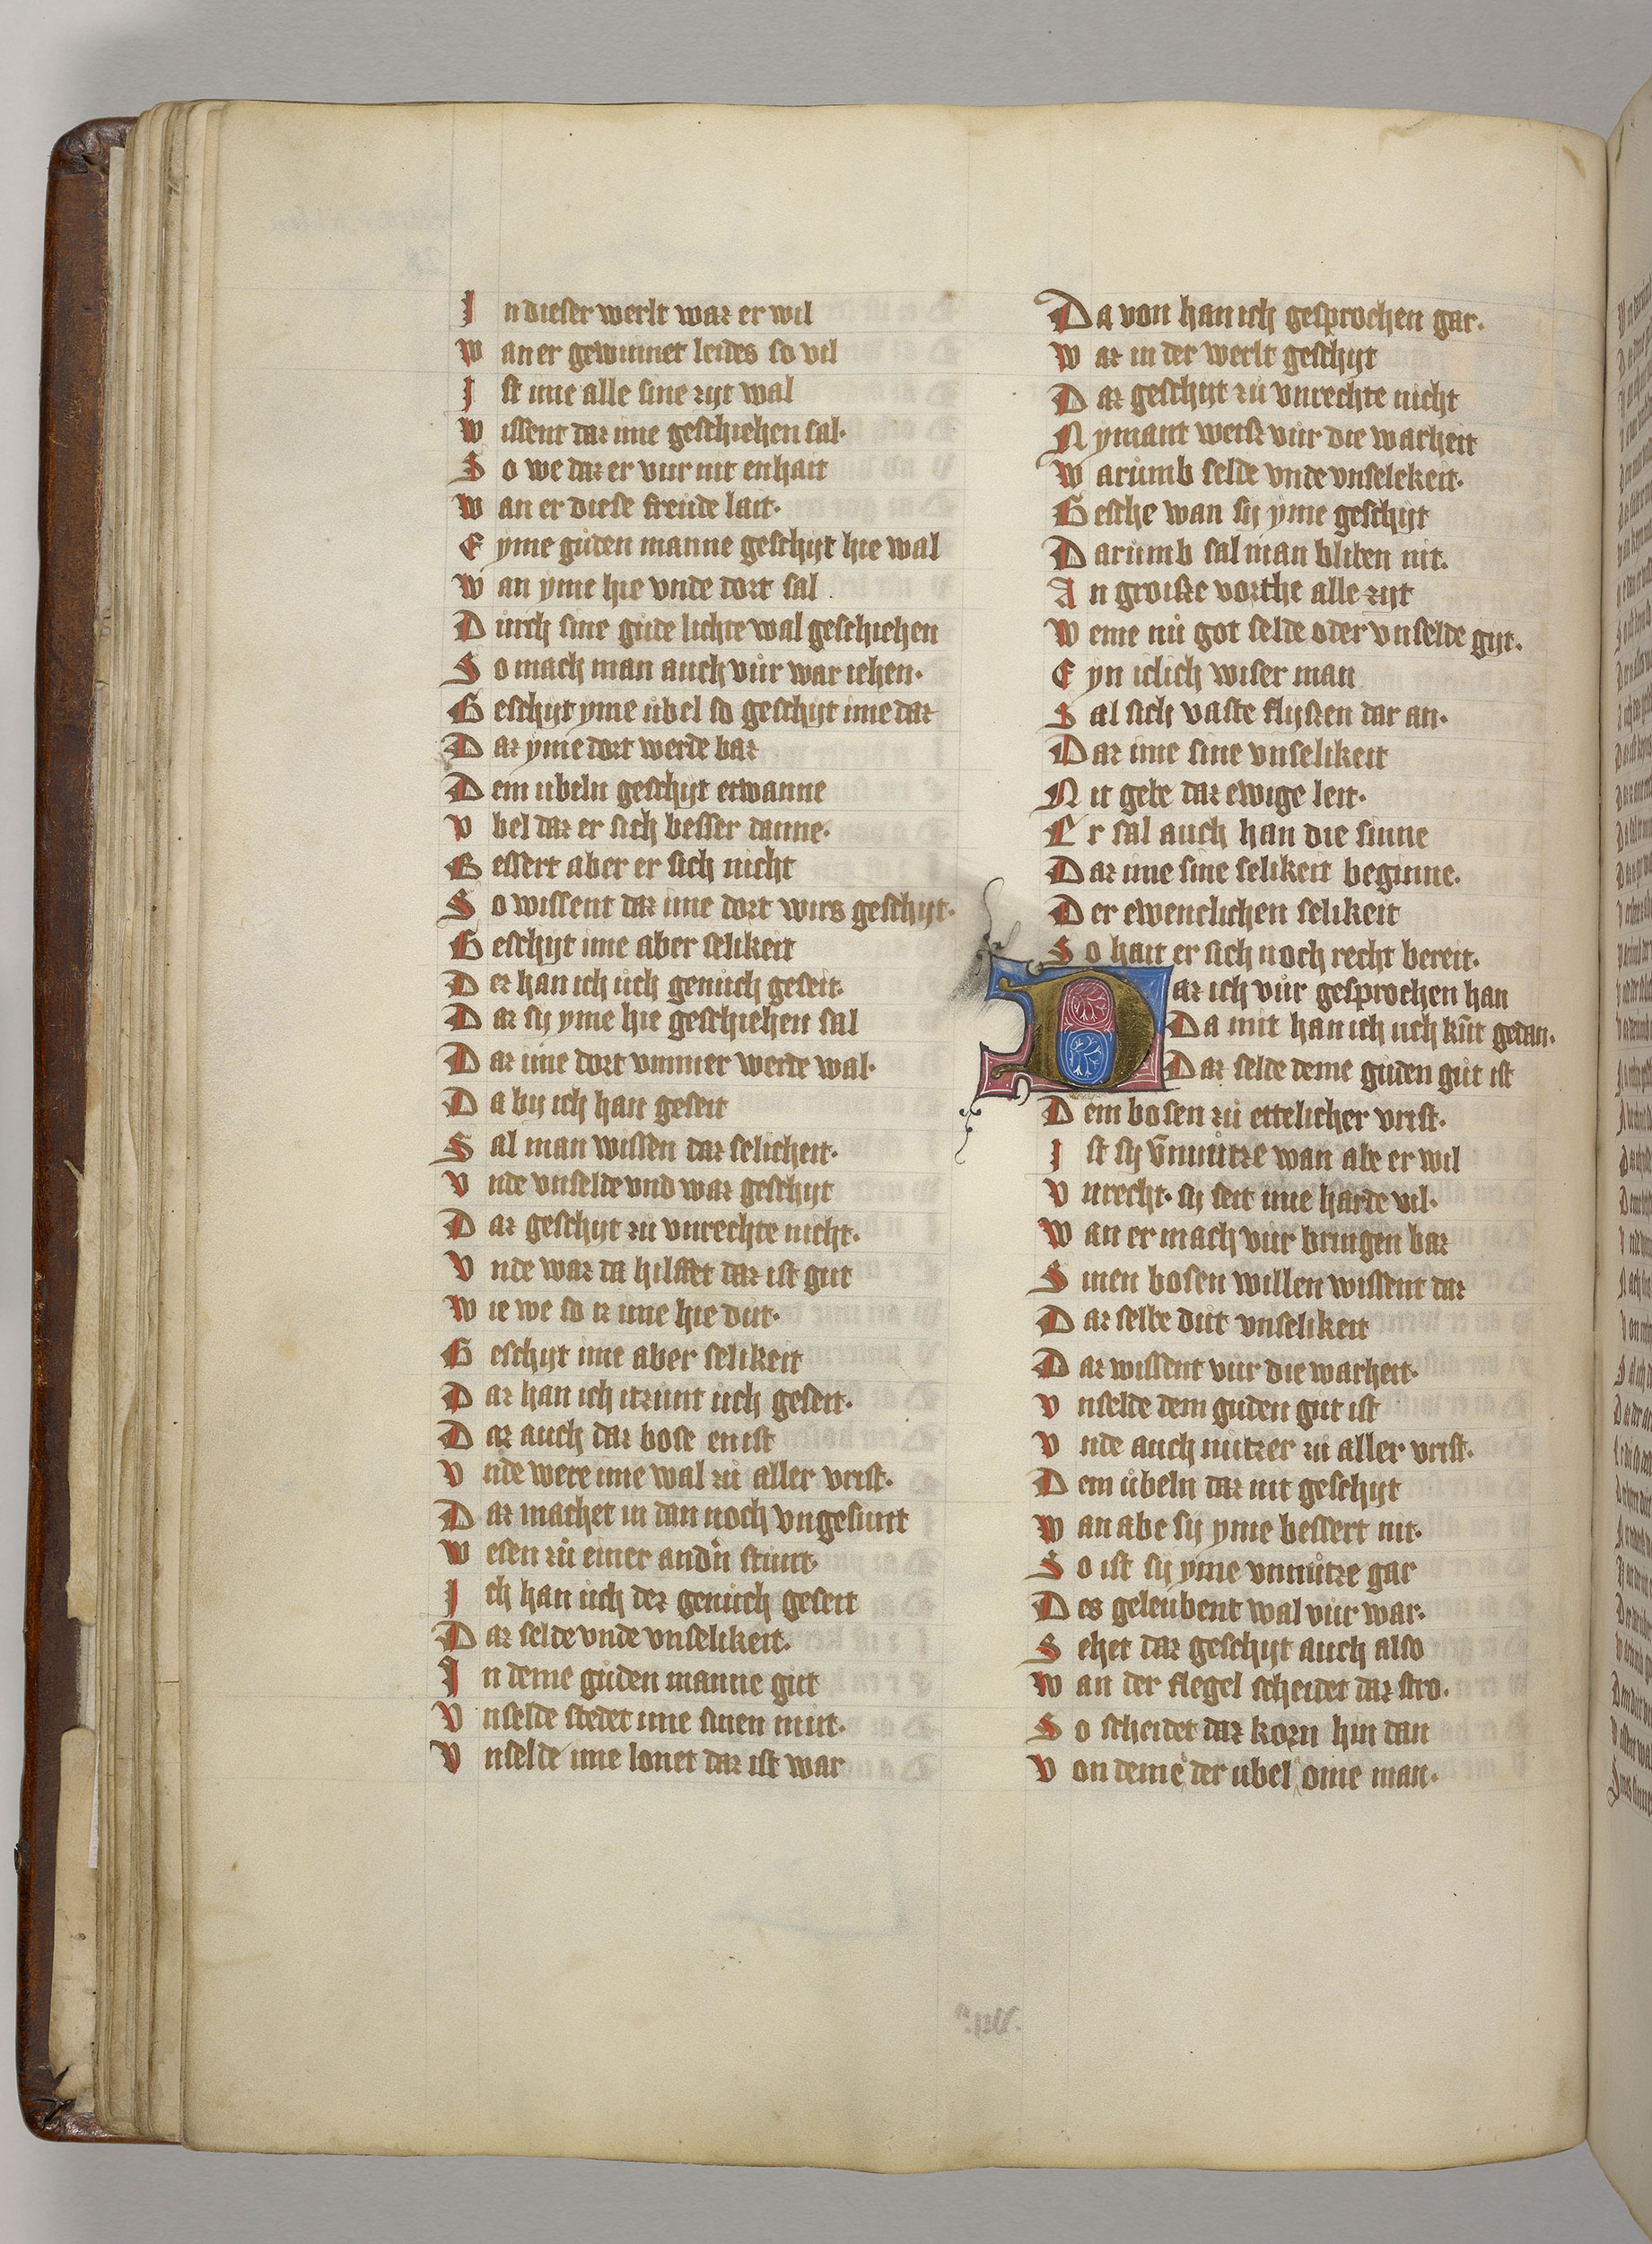 In dieser werlt waz er wil
Wan er gewinnet leides so vil
Ist ime alle sine zijt wal
Wissent daz ime geschiehen sal·
So we daz er vur nit enhait
Wan er diese freude lait·
Eyme gůden manne geschijt hie wal
Wan yme hie vnde dort sal
Durch sine gůte lichte wal geschiehen
So mach man auch vůr war iehen·
Geschijt yme ůbel so geschijt ime daz
Daz yme dort werde baz
Dem ubeln geschijt etwanne
Vbel daz er sich besser danne·
Bessert aber er sich nicht
So wissent daz ime dort wirs geschijt·
Geschijt ime aber selikeit
Dez han ich ůch genůch geseit·
Daz sy yme hie geschiehen sal
Daz ime dort vmmer werde wal·
Da by ich han geseit
Sal man wissen daz selicheit·
Vnde vnselde vnd waz geschijt
Daz geschijt zů vnrechte nicht·
Vnde waz da hilffet daz ist gut
Wie we so iz ime hie dut·
Geschijt ime aber selikeit
Daz han ich itzunt ůch geseit·
Daz auch daz bose enist
Vnde were ime wal zů aller vrist·
Daz machet in dan noch vngesunt
Wesen zů einer andn stunt·
Ich han ůch dez genůch geseit
Daz selde vnde vnselikeit·
In deme gůden manne gůt
Vnselde stedet ime sinen mut·
Vnselde ime lonet daz ist war
Da von han ich gesprochen gar·
Waz in der werlt geschijt
Daz geschijt zů vnrechte nicht
Nymant weiß vůr die warheit
Warůmb selde vnde vnselekeit·
Gesche wan sy yme geschijt
Darumb sal man bliben nit·
An groiße vorthe alle zijt
Weme nů got selde oder vnselde gijt·
Eyn iclich wiser man
Sal sich vaste flyßen dar an·
Daz ime sine vnselikeit
Nit gebe daz ewige leit·
Er sal auch han die sinne
Daz ime sine selikeit beginne·
Der ewenclichen selikeit
So hait er sich noch recht bereit·
Daz ich vůr gesprochen han
Da mit han ich uch kūt gedan·
Daz selde deme gůden gůt ist
Dem bosen zů ettelicher vrist·
Ist sy v̄nuůtze wan abe er wil
Vnrecht· sy seit ime harte vil·
Wan er mach vůr bringen baz
Sinen bosen willen wissent daz
Daz selbe důt vnselikeit
Daz wissent vůr die warheit·
Vnselde dem guden gůt ist
Vnde auch nůtzer zů aller vrist·
Dem ůbeln daz nit geschijt
Wan abe sy yme bessert nit·
So ist sy yme vnnůtze gar
Des geleubent wal vůr war·
Sehet daz geschijt auch also
Wan der flegel scheidet daz stro·
So scheidet daz korn hin dan
Von deme der ubel ome man·